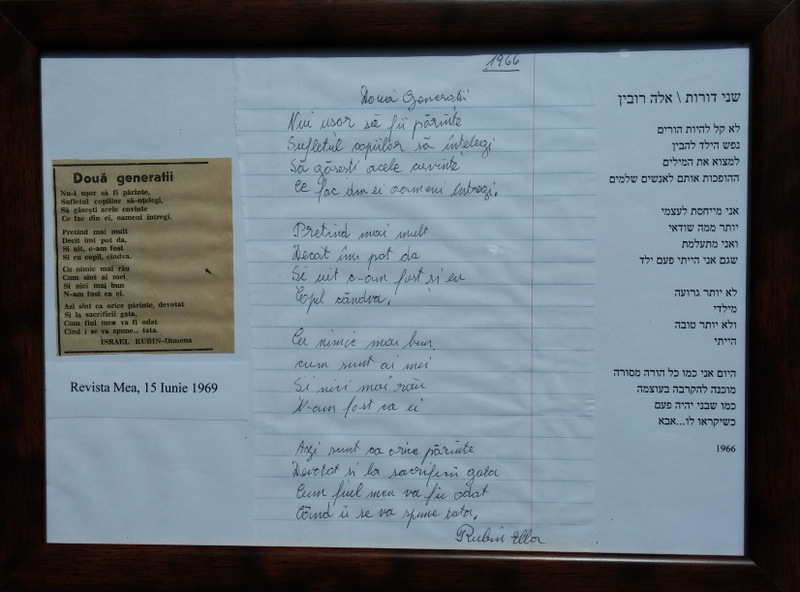 Două generatii
Nu-i uşor să fi părinte,
Sufletul copiilor să-nţelegi,
Să găseşti acele cuvinte
Ce fac din ei, oameni intregi.
Pretind mai mult
Decit imi pot da,
Si uit, c-am fost
Si eu copil, cindva.
Cu nimic mai rău
Cum sint ai mei,
Si nici mai bun
N-am fost ca ei.
Azi sint ca orice părinte, devotat
Si la sacrificii gata,
Cum fiul meu va fi odat
Cind i se va spune... tata.
ISRAEL RUBIN-Dimona
Revista Mea, 15 Iunie 1969
1966
Două Generatii
Nui usor să fii părinte
Sufletul copiilor să intelegi
Să găsesti acele cuvinte
Ce fac din ei oameni intregi.
Pretind mai mult
Decât imi pot da
Si uit c-am fost și eu
Copil cândva.
Cu nimic mai bun
cum sunt ai mei
Si nici mai rău
N-am fost ca ei
Azi sunt ca orice părinte
Devotat si la sacrificii gata
Cum fiul meu va fii odat
Când ii se va spune tata.
Rubin Ella
שני דורות \ אלה רובין
לא קל להיות הורים
נפש הילד להבין
למצוא את המילים
ההופכות אותם לאנשים שלמים
אני מייחסת לעצמי
יותר ממה שודאי
ואני מתעלמת
שגם אני הייתי פעם ילד
לא יותר גרועה
מילדי
ולא יותר טובה
הייתי
היום אני כמו כל הורה מסורה
מוכנה להקרבה בעוצמה
כמו שבני יהיה פעם
כשיקראו לו...אבא
1966